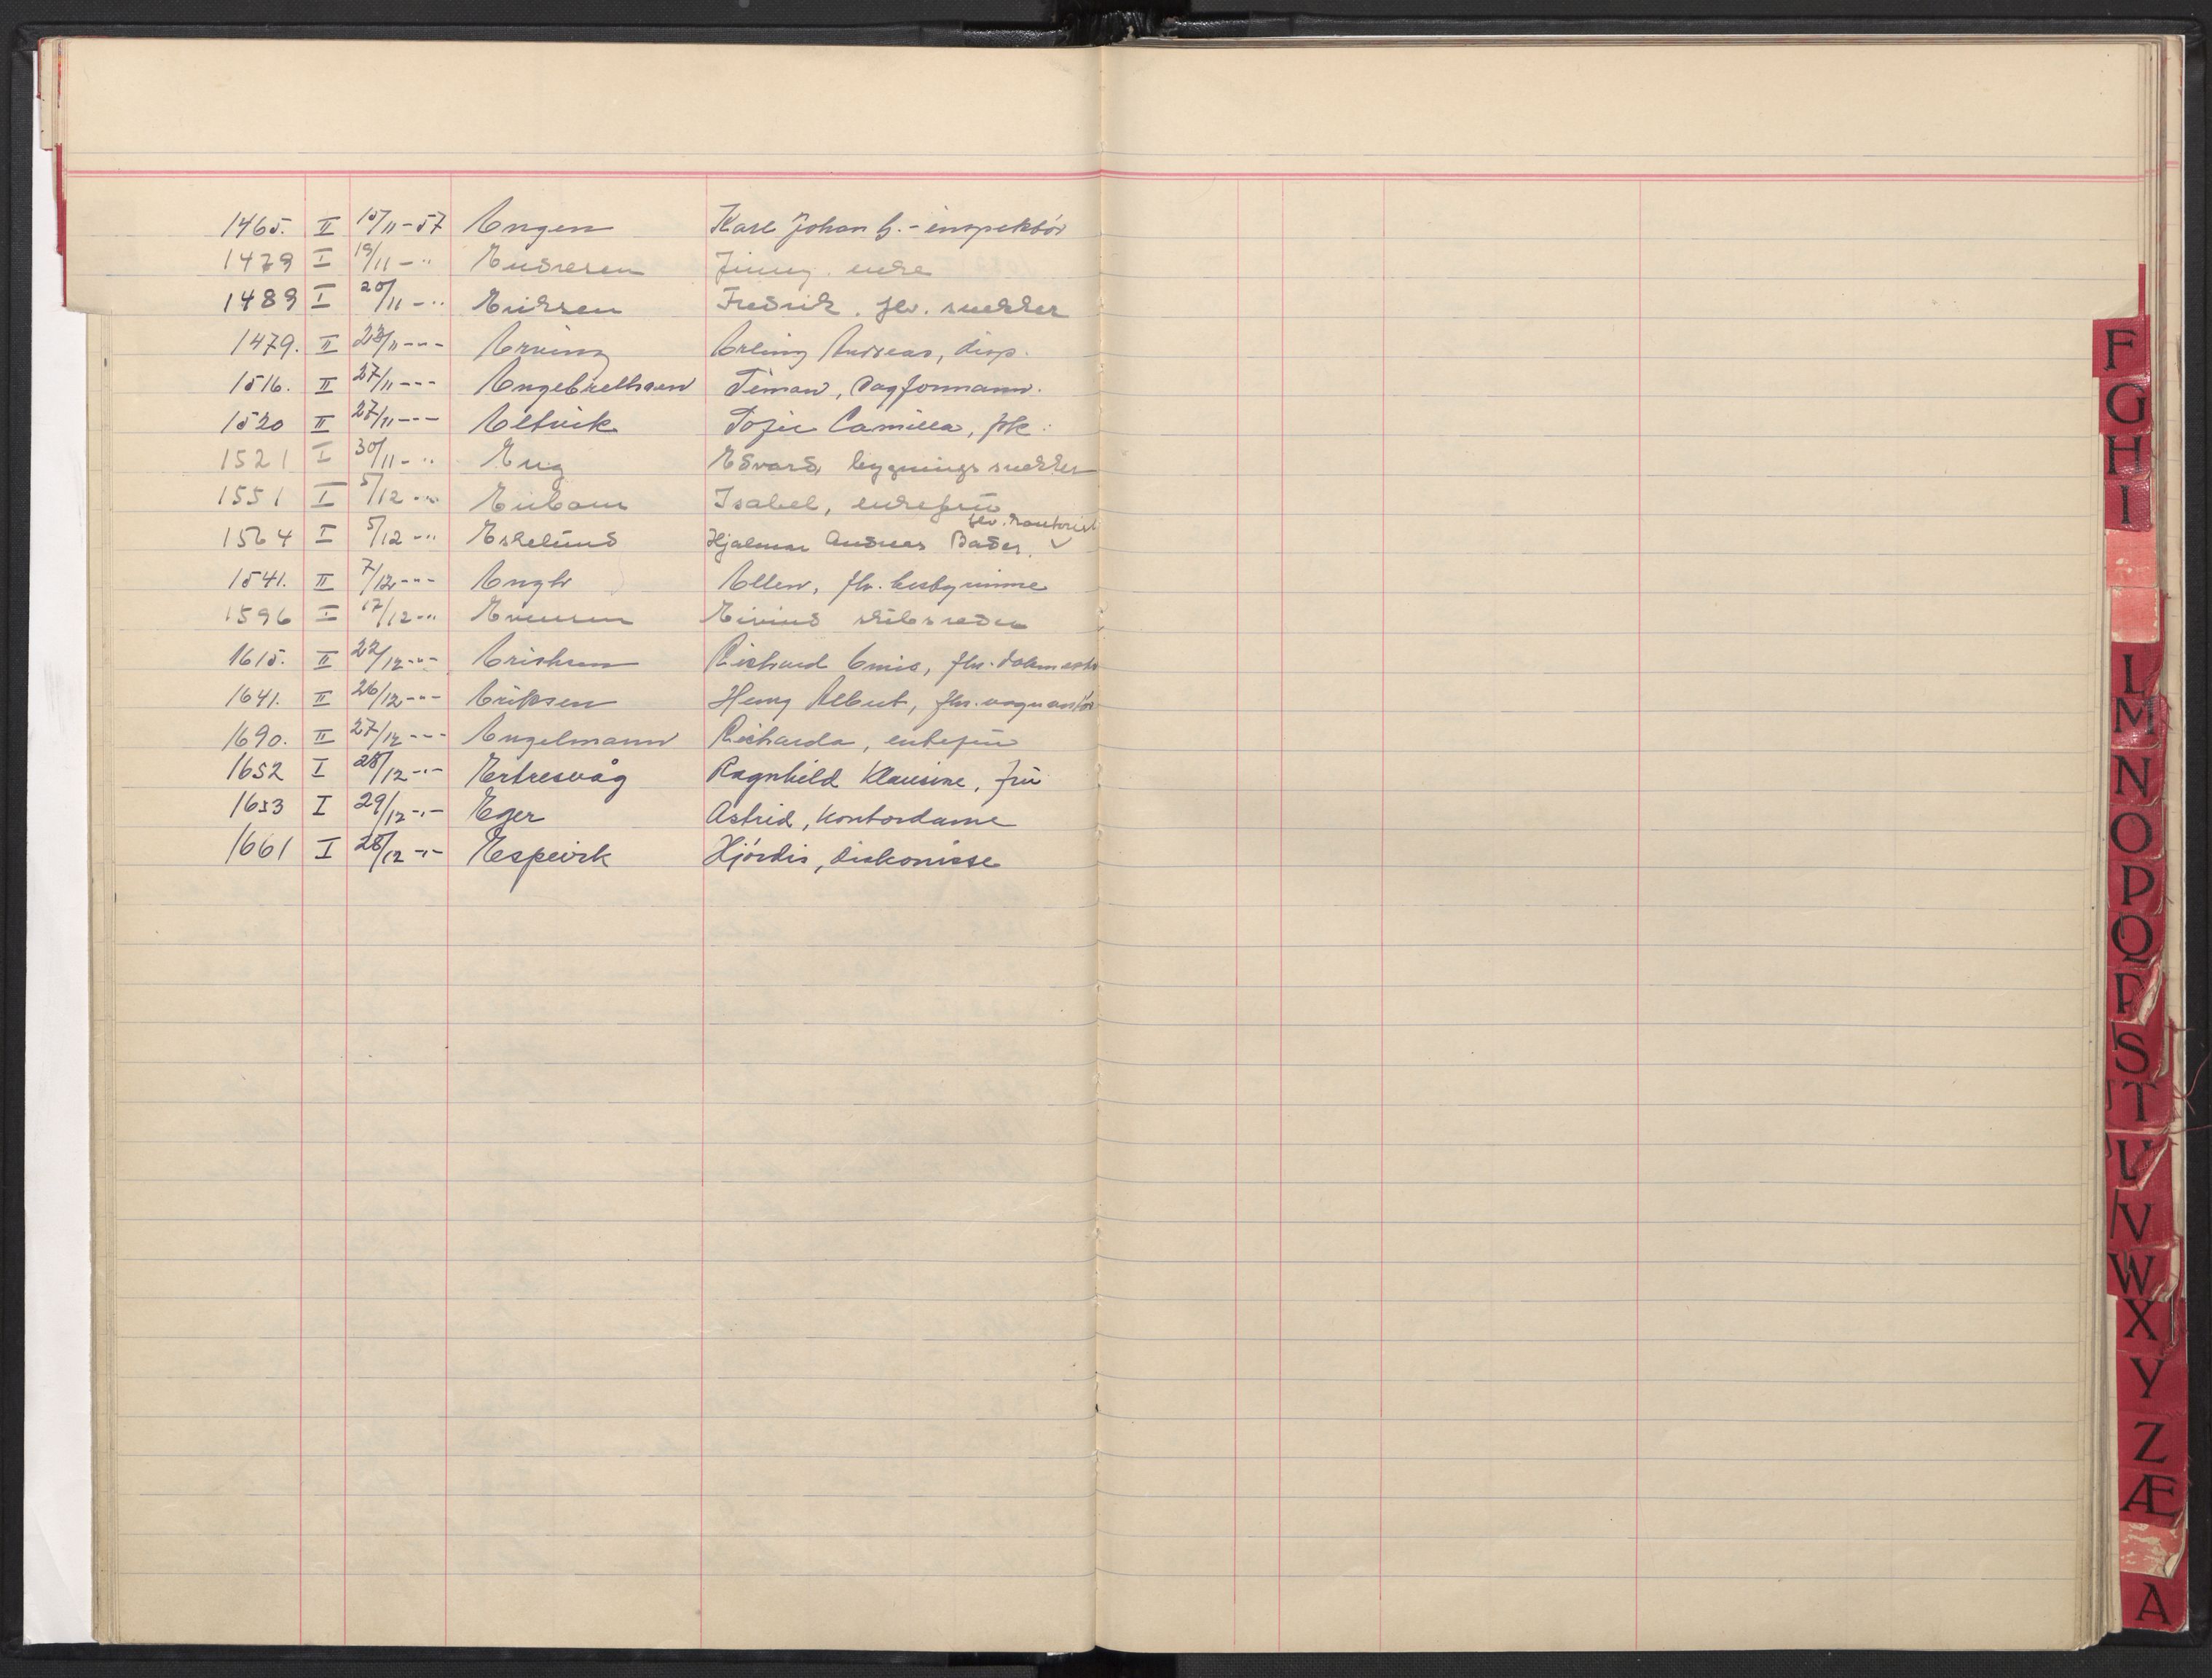 1465. II 15/11-57 Engen Karl Johan G.- inspektør
1479 I 19/11 - " Endresen Jinny. enke
1489 I 20/11 - " Eriksen Fredrik. fhv. snekker
1479. II 23/11 - " - Erving Erling Andreas, disp.
1516. II 27/11 - " - Engebrethsen Timan, Dagformann.
1520 II 27/11 - " - Eltvik Sofie Camilla, frk.
1521 I 30/11 - " Eng Edvard, bygningssnekker
1551 I 5/12 - " Isabel, enkefru
fhv. kontorist
1564 I 5/12 - " Eskelund Hjalmar Andreas Bader. ✓
1541. II 7/12 - " - Engh Ellen, fhv. bestyrerinne
1596 I 17/12 - " Evensen Eivind skibsreder
1615. II 22/12 - " - Erichsen Richard Emis, fhv.
1641. II 26/12 - " - Eriksen Henry Albert, fhv.
1690. II 27/12 - " - Engelmann Richarda, enkefru
1652 I 28/12 - " - Ertresvåg Ragnhild Klausine, fru
1653 I 29/12 - " - Eger Astrid, kontordame
1661 I 28/12 - " - Espevik Hjørdis, diakonisse
F
G
H
I
L
M
N
O
P
Q
R
S
T
U
V
W
X
Y
Z
Æ
A